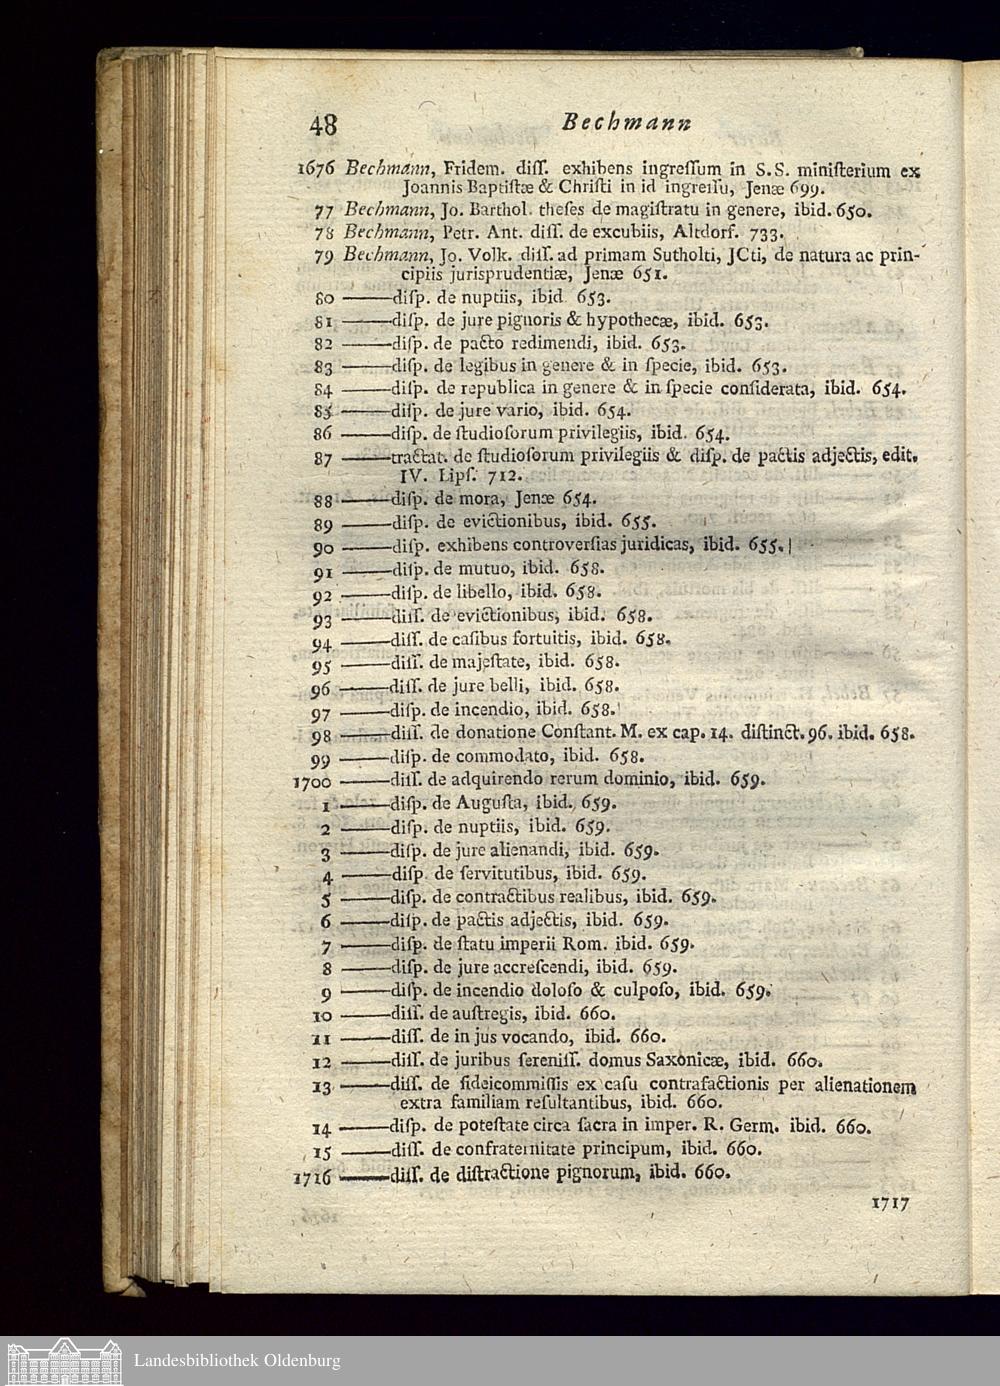 48 Bechmann
1676 Bechmann, Fridem. diſſ. exhibens ingreſſum in S.S. miniſterium ex
Joannis Baptiſtæ & Chriſti in id ingreſſu, Jenæ 699.
77 Bechmann, Jo. Barthol. theſes de magiſtratu in genere, ibid. 650.
78 Bechmann, Petr. Ant. diſſ. de excubiis, Altdorf. 733.
79 Bechmann, Jo. Volk. diſſ. ad primam Sutholti, JCti, de natura ac prin-
cipiis jurisprudentiæ, Jenæ 651.
80 ——diſp. de nuptiis, ibid 653.
81 ——diſp. de jure pignoris & hypothecæ, ibid. 653.
82 ——diſp. de pacto redimendi, ibid. 653.
83 ——diſp. de legibus in genere & in ſpecie, ibid. 653.
84 ——diſp. de republica in genere & in ſpecie conſiderata, ibid. 654.
85 ——diſp. de jure vario, ibid. 654.
86 ——diſp. de ſtudioſorum privilegiis, ibid. 654.
87 ——tractat. de ſtudioſorum privilegiis & diſp. de pactis adjectis, edit.
IV. Lipſ. 712.
88 ——diſp. de mora, Jenæ 654.
89 ——diſp. de evictionibus, ibid. 655.
90 ——diſp. exhibens controverſias juridicas, ibid. 655.
91 ——diſp. de mutuo, ibid. 658.
92 ——diſp. de libello, ibid. 658.
93 ——diſſ. de evictionibus, ibid. 658.
94 ——diſſ. de caſibus fortuitis, ibid. 658.
95 ——diſſ. de majeſtate, ibid. 658.
96 ——diſſ. de jure belli, ibid. 658.
97 ——diſp. de incendio, ibid. 658.
98 ——diſſ. de donatione Conſtant. M. ex cap. 14. diſtinct. 96. ibid. 658.
99 ——diſp. de commodato, ibid. 658.
1700 ——diſſ. de adquirendo rerum dominio, ibid. 659.
1 ——diſp. de Auguſta, ibid. 659.
2 ——diſp. de nuptiis, ibid. 659.
3 ——diſp. de jure alienandi, ibid. 659.
4 ——diſp. de ſervitutibus, ibid. 659.
5 ——diſp. de contractibus realibus, ibid. 659.
6 ——diſp. de pactis adjectis, ibid. 659.
7 ——diſp. de ſtatu imperii Rom. ibid. 659.
8 ——diſp. de jure accreſcendi, ibid. 659.
9 ——diſp. de incendio doloſo & culpoſo, ibid. 659.
10 ——diſſ. de auſtregis, ibid. 660.
11 ——diſſ. de in jus vocando, ibid. 660.
12 ——diſſ. de juribus ſereniſſ. domus Saxonicæ, ibid. 660.
13 ——diſſ. de fideicommiſſis ex caſu contrafactionis per alienationem
extra familiam reſultantibus, ibid. 660.
14 ——diſp. de poteſtate circa ſacra in imper. R. Germ. ibid. 660.
15 ——diſſ. de confraternitate principum, ibid. 660.
1716 ——diſſ. de diſtractione pignorum, ibid. 660.
1717
Landesbibliothek Oldenburg